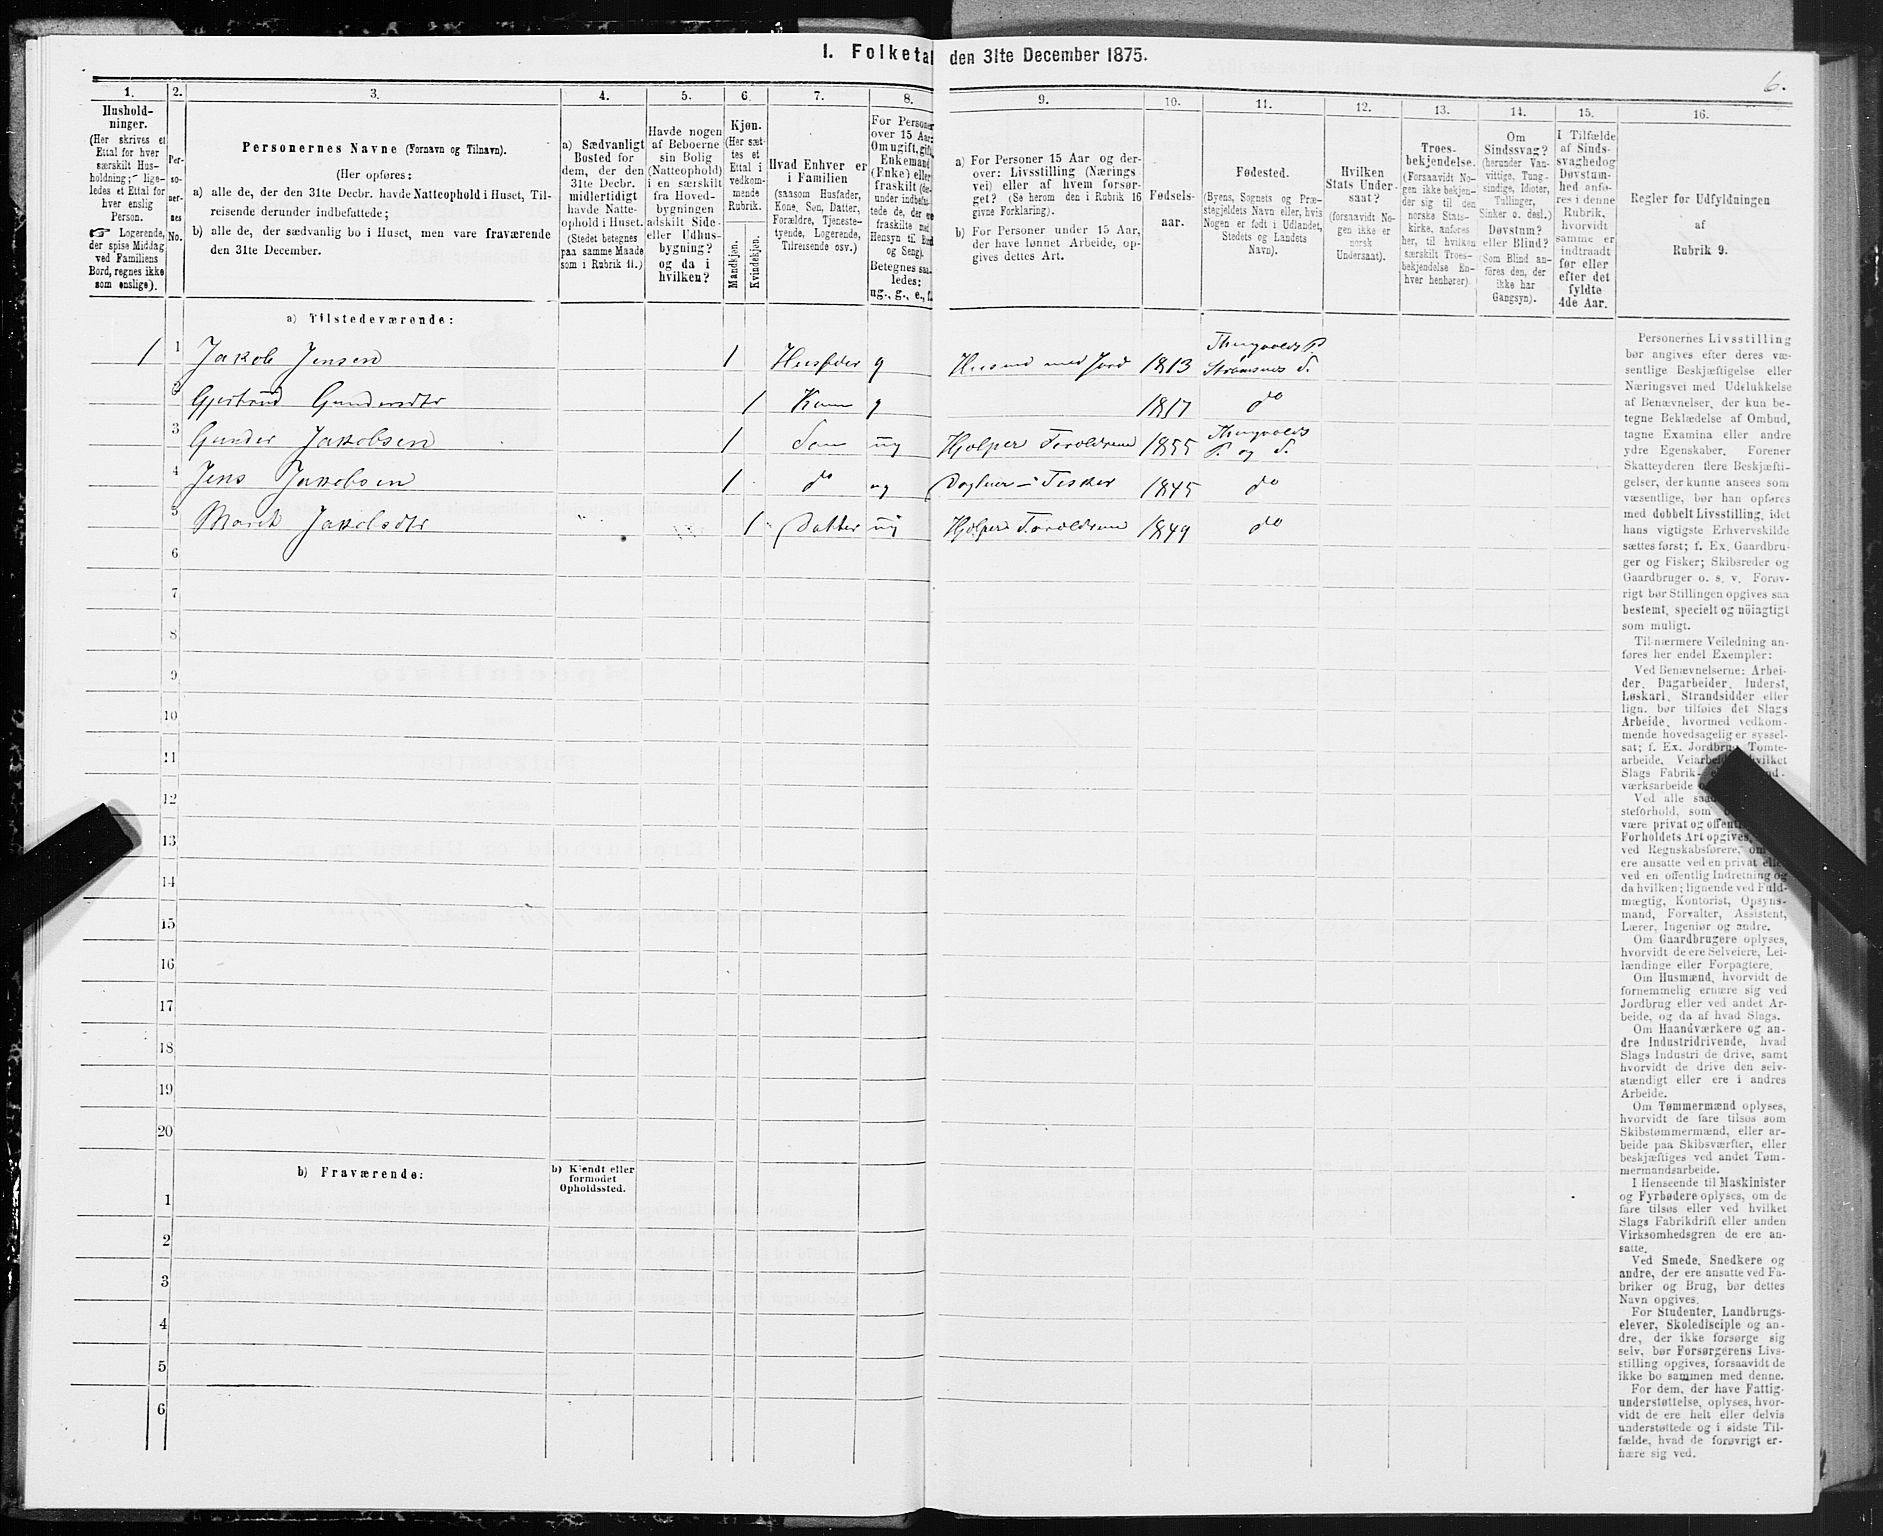 I. Folketal den 31te December 1875.
6.
1.
Hushold-
ninger.
(Her skrives et
Ettal for hver
særskilt Hus-
holdning; lige-
ledes et Ettal for
hver enslig
Person.
☞ Logerende,
der spise Middag
ved Familiens
Bord, regnes ikke
som enslige).
2.
Per-
so-
ner-
nes
No.
3.
Personernes Navne (Fornavn og Tilnavn).
(Her opføres:
a) alle de, der den 31te Decbr. havde Natteophold i Huset, Til-
reisende derunder indbefattede;
b) alle de, der sædvanlig bo i Huset, men vare fraværende
den 31te December.
4.
a) Sædvanligt
Bosted for
dem, der den
31te Decbr.
midlertidigt
havde Natte-
ophold i Huset.
(Stedet betegnes
paa samme Maade
som i Rubrik 11.)
5.
Havde nogen
af Beboerne
sin Bolig
(Natteophold)
i en særskilt
fra Hoved-
bygningen
adskilt Side-
eller Udhus-
bygning?
og da i
hvilken?
6.
Kjøn.
(Her sæt-
tes et
Ettal i
vedkom-
mende
Rubrik.
Mandkjøn.
Kvindekjøn.
7.
Hvad Enhver er
i Familien
(saasom Husfader,
Kone, Søn, Datter,
Forældre, Tjeneste-
tyende, Logerende,
Tilreisende osv.)
8.
For Personer
over 15 Aar:
Om ugift, gift,
Enkemand
(Enke) eller
fraskilt (der-
under indbefat-
tede de, der ere
fraskilte med
Hensyn til Bord
og Seng).
Betegnes saa-
ledes:
ug., g., e., f.
9.
a) For Personer 15 Aar og der-
over: Livsstilling (Nærings-
vei) eller af hvem forsør-
get? (Se herom den i Rubrik 16
givne Forklaring).
b) For Personer under 15 Aar,
der have lønnet Arbeide, op-
gives dettes Art.
10.
Fødsels-
aar.
11.
Fødested.
(Byens, Sognets og Præ-
stegjeldets Navn eller, hvis
Nogen er født i Udlandet,
Stedets og Landets
Navn).
12.
Hvilken
Stats Under-
saat?
(forsaavidt No-
gen ikke er
norsk
Undersaat).
13.
Troes-
bekjendelse.
(Forsaavidt No-
gen ikke bekjen-
der sig til den
norske Stats-
kirke, anføres
her, til hvilken
særskilt Troes-
bekjendelse En-
hver henhører).
14.
Om
Sindssvag?
(herunder Van-
vittige, Tung-
sindige, Idioter,
Tullinger,
Sinker o. desl.)
Døvstum?
eller Blind?
(Som Blind an-
føres den, der
ikke har
Gangsyn).
15.
I Tilfælde
af Sinds-
svaghedog
Døvstum-
hed anfø-
res i denne
Rubrik,
hvorvidt
samme er
indtraadt
før eller
efter det
fyldte
4de Aar.
16.
Regler for Udfyldningen
af
Rubrik 9.
a) Tilstedeværende:
1 1 Jakob Jensen 1 Husfader g Husmd med Jord 1813 Thingvolds P. Strømsnes S.
2 Gjertrud Gundersdtr 1 Kone g 1817 do
3 Gunder Jakobsen 1 Søn ug Hjelper Forældrene 1855 Thingvolds P. og S.
4 Jens Jakobsen 1 do ug Fisker 1845 do
5 Marit Jakobsdtr 1 Datter ug Hjelper Forældrene 1849 do
6
7
8
9
10
11
12
13
14
15
16
17
18
19
20
b) Fraværende:
b) Kjendt eller
formodet
Opholdssted.
1
2
3
4
5
6
Personernes Livsstilling
bør angives efter deres væ-
sentlige Beskjæftigelse eller
Næringsvei med Udelukkelse
af Benævnelser, der kun be-
tegne Beklædelse af Ombud,
tagne Examina eller andre
ydre Egenskaber. Forener
Skatteyderen flere Beskjæfti-
gelser, der kunne ansees som
væsentlige, bør han opføres
med dobbelt Livsstilling, idet
hans vigtigste Erhvervskilde
sættes først; f. Ex. Gaardbru-
ger og Fisker; Skibsreder og
Gaardbruger o. s. v. Forøv-
rigt bør Stillingen opgives saa
bestemt, specielt og nöiagtigt
som muligt.
Til nærmere Veiledning an-
føres her endel Exempler:
Ved Benævnelserne: Arbei-
der, Dagarbeider, Inderst,
Løskarl, Strandsidder eller
lign. bør tilføies det Slags
Arbeide, hvormed vedkom-
mende hovedsagelig er syssel-
sat; f. Ex. Jordbrug, Tomte-
arbeide, Veiarbeide, hvilket
Slags Fabrik-
værksarbeide
Ved alle
steforhold, som
være privat og offentligt,
Forholdets Art opgives,
ved Regnskabsførere, om de
ere ansatte ved en privat eller
ved en offentlig Indretning og
da hvilken; lignende ved Fuld-
mægtig, Kontorist, Opsyns-
mand, Forvalter, Assistent,
Lærer, Ingeniør og andre.
Om Gaardbrugere oplyses,
hvorvidt de ere Selveiere, Lei-
lændinge eller Forpagtere.
Om Husmænd, hvorvidt de
fornemmelig ernære sig ved
Jordbrug eller ved andet Ar-
beide, og da af hvad Slags.
Om Haandværkere og an-
dre Industridrivende, hvad
Slags Industri de drive, samt
hvorvidt de drive den selv-
stændigt eller ere i andres
Arbeide.
Om Tømmermænd oplyses,
hvorvidt de fare tilsøs som
Skibstømmermænd, eller ar-
beide paa Skibsværfter, eller
beskjæftiges ved andet Tøm-
mermandsarbeide.
I Henseende til Maskinister
og Fyrbødere oplyses, om de
fare tilsøs eller ved hvilket
Slags Fabrikdrift eller anden
Virksomhedsgren de ere an-
satte.
Ved Smede, Snedkere og
andre, der ere ansatte ved Fa-
briker og Brug, bør dettes
Navn opgives.
For Studenter, Landbrugs-
elever, Skoledisciple og an-
dre, der ikke forsørge sig
selv, bør Forsørgerens Livs-
stilling opgives, forsaavidt de
ikke bo sammen med denne.
For dem, der have Fattig-
understøttelse, oplyses, hvor-
vidt de ere helt eller delvis
understøttede og i sidste Til-
fælde, hvad de forøvrigt er-
nære sig ved.